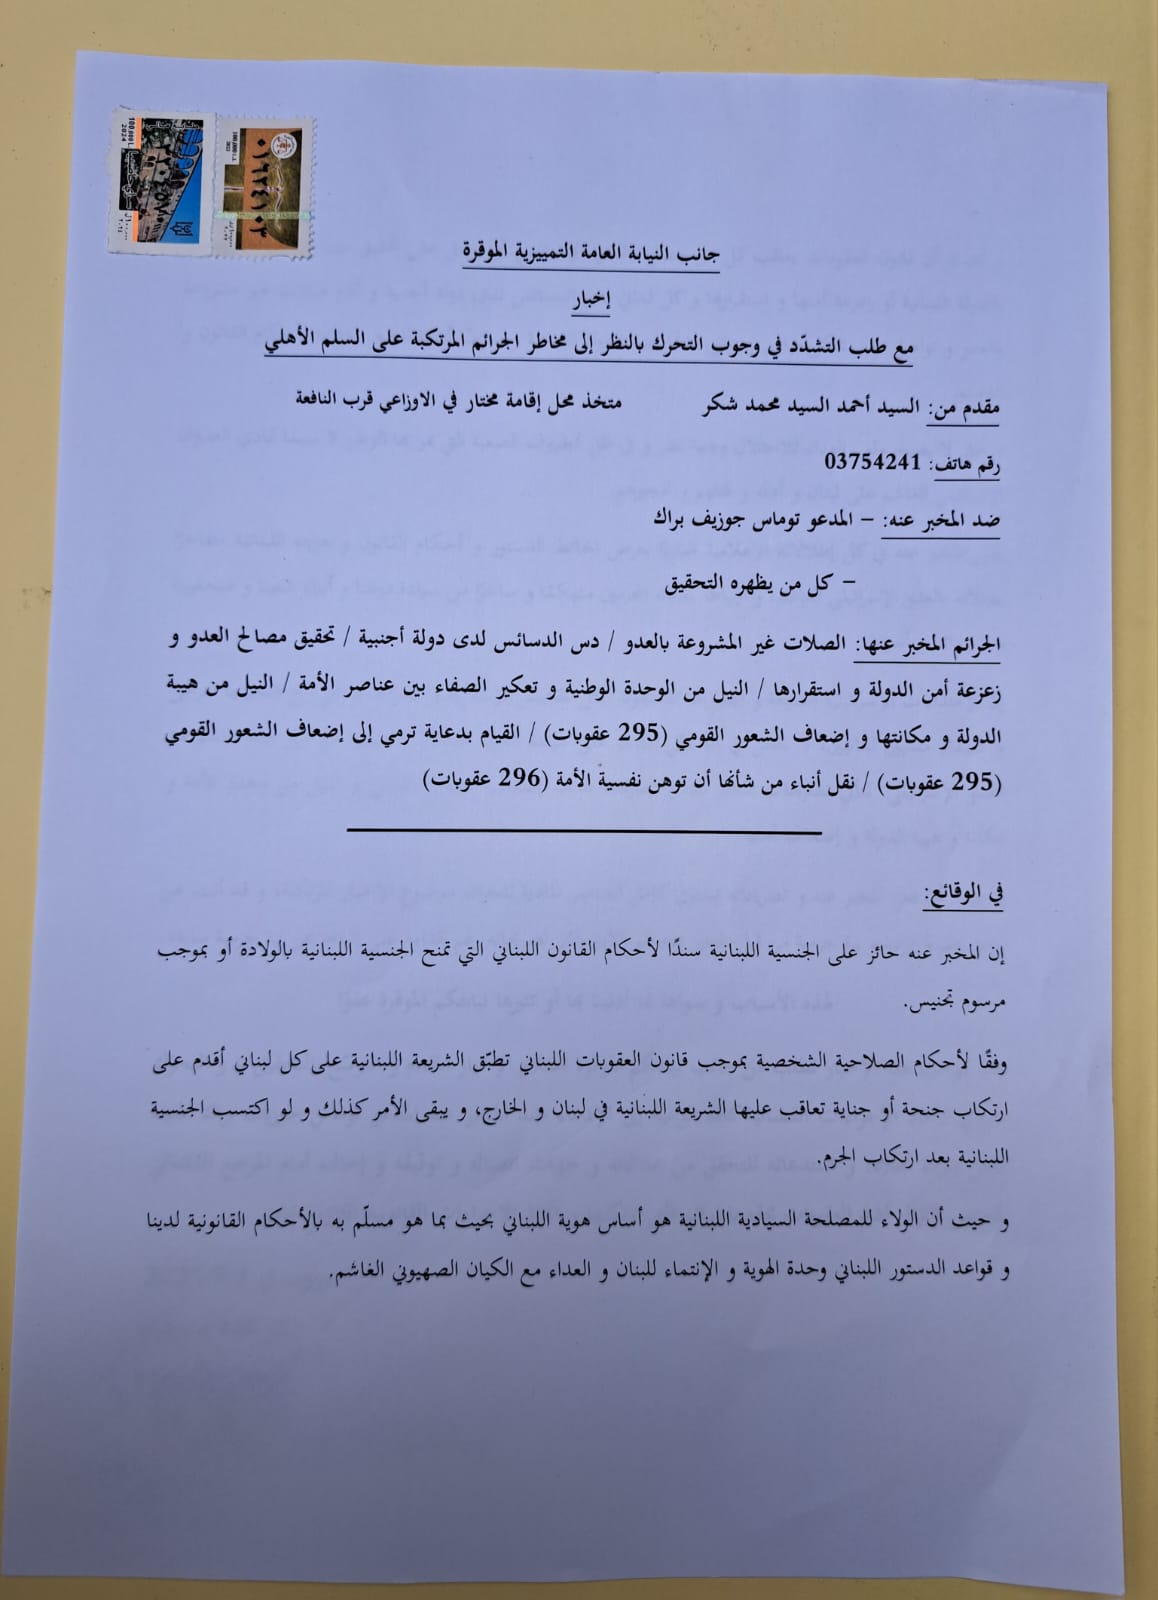 100.000 L.L.
2024
٠١٩٢٤١٠٣
جانب النيابة العامة التمييزية الموقرة
إخبار
مع طلب التشدّد في وجوب التحرك بالنظر إلى مخاطر الجرائم المرتكبة على السلم الأهلي
مقدم من: السيد أحمد السيد محمد شكر متخذ محل إقامة مختار في الاوزاعي قرب النافعة
رقم هاتف: 03754241
ضد المخبر عنه: – المدعو توماس جوزيف براك
– كل من يظهره التحقيق
الجرائم المخبر عنها: الصلات غير المشروعة بالعدو / دس الدسائس لدى دولة أجنبية / تحقيق مصالح العدو و
زعزعة أمن الدولة و استقرارها / النيل من الوحدة الوطنية و تعكير الصفاء بين عناصر الأمة / النيل من هيبة
الدولة و مكانتها و إضعاف الشعور القومي (295 عقوبات) / القيام بدعاية ترمي إلى إضعاف الشعور القومي
(295 عقوبات) / نقل أنباء من شأنها أن توهن نفسية الأمة (296 عقوبات)
في الوقائع:
إن المخبر عنه حائز على الجنسية اللبنانية سندًا لأحكام القانون اللبناني التي تمنح الجنسية اللبنانية بالولادة أو بموجب
مرسوم تجنيس.
وفقًا لأحكام الصلاحية الشخصية بموجب قانون العقوبات اللبناني تطبّق الشريعة اللبنانية على كل لبناني أقدم على
ارتكاب جنحة أو جناية تعاقب عليها الشريعة اللبنانية في لبنان و الخارج، و يبقى الأمر كذلك و لو اكتسب الجنسية
اللبنانية بعد ارتكاب الجرم.
و حيث أن الولاء للمصلحة السيادية اللبنانية هو أساس هوية اللبناني بحيث بما هو مسلّم به بالأحكام القانونية لدينا
و قواعد الدستور اللبناني وحدة الهوية و الإنتماء للبنان و العداء مع الكيان الصهيوني الغاشم.